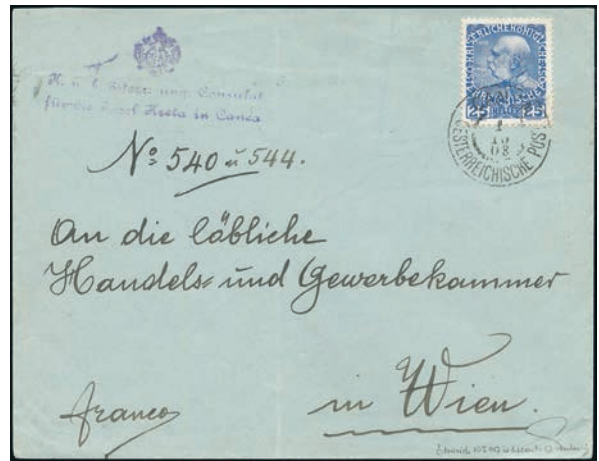 K. u. k. Österr. ung. Consulat
für die Insel Kreta in Canea
KAISERLICHE KÖNIGLICHE
25 25
1
10
08
OESTERREICHISCHE POST
No 540 u 544.
An die löbliche
Handels- und Gewerbekammer
in Wien.
franco